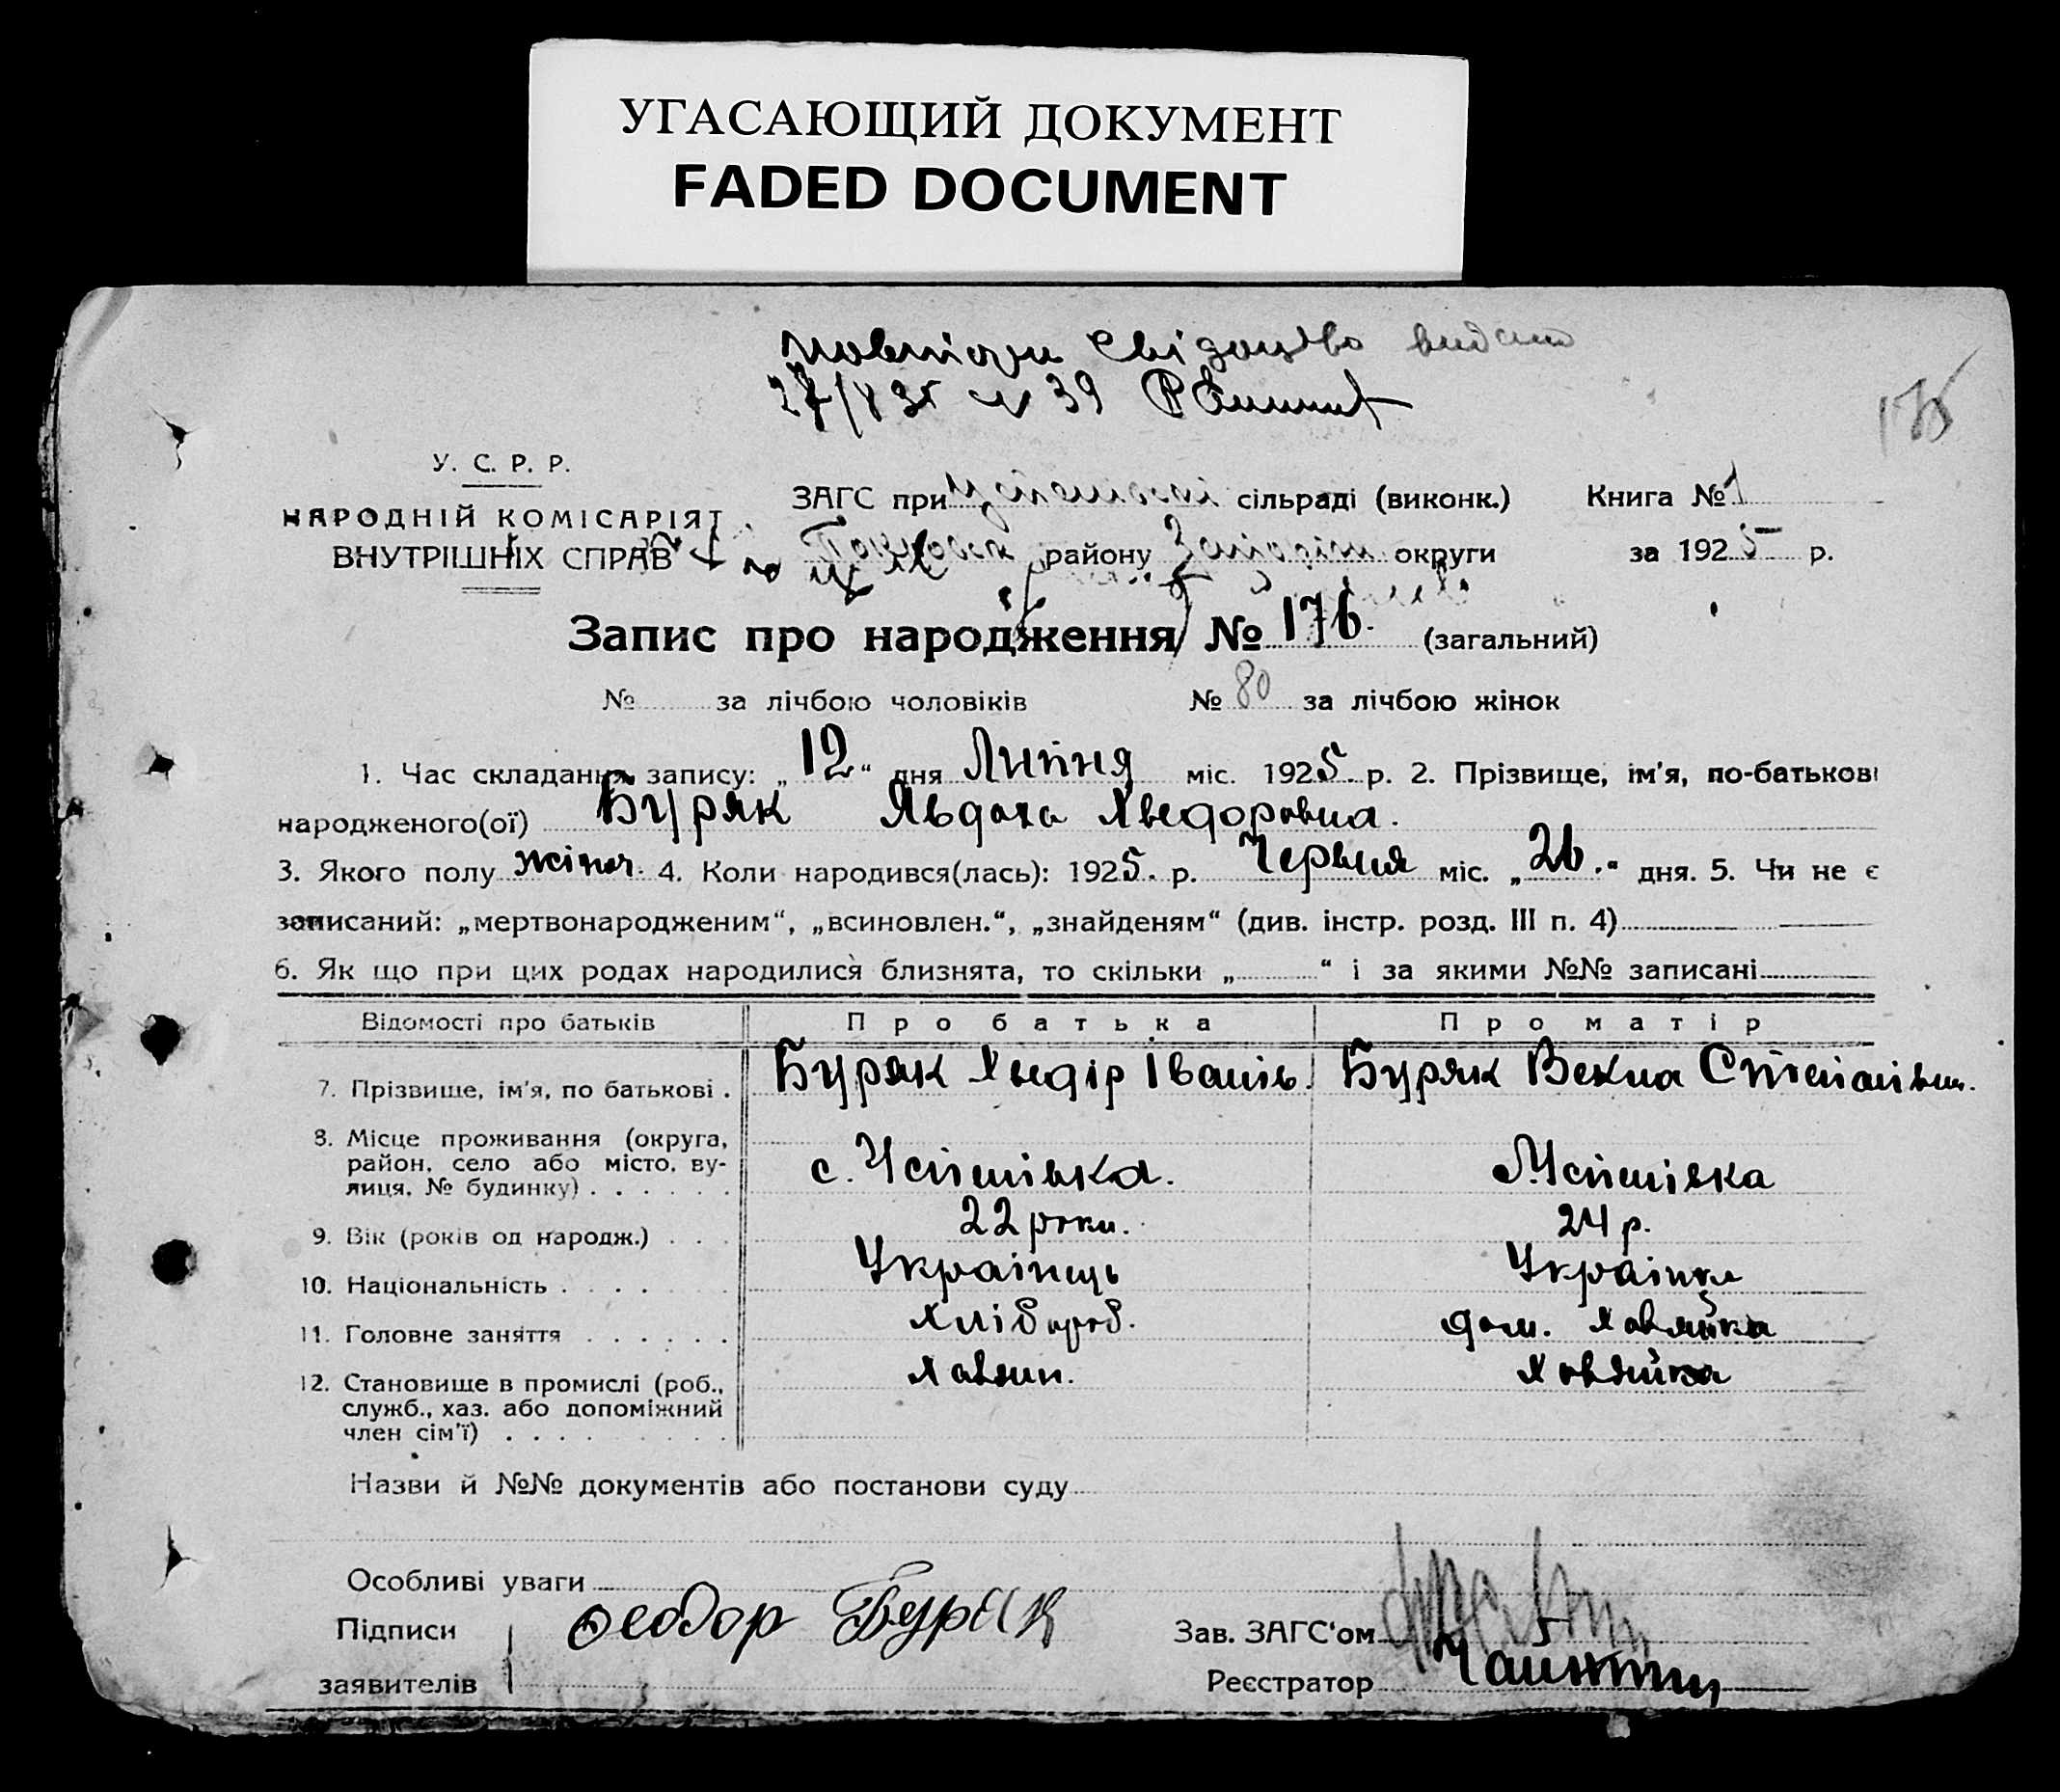 УГАСАЮЩИЙ ДОКУМЕНТ
FADED DOCUMENT
свідоцтво видано
39
У. С. Р. Р.
НАРОДНІЙ КОМІСАРІЯТ
ВНУТРІШНІХ СПРАВ
ЗАГС при сільраді (виконк.) Книга № 1
району округи за 1925 р.
Запис про народження № 176. (загальний)
№ за лічбою чоловіків № 80 за лічбою жінок
1. Час складання запису: „12“ дня Липня міс. 1925 р. 2. Прізвище, ім'я, по-батькові
народженого(ої) Буряк Явдоха Хведоровна.
3. Якого полу жіноч. 4. Коли народився(лась): 1925. р. Червня міс. „26.“ дня. 5. Чи не є
записаний: „мертвонародженим“, „всиновлен.“, „знайденям“ (див. інстр. розд. III п. 4)
6. Як що при цих родах народилися близнята, то скільки „ “ і за якими №№ записані
Відомості про батьків Про батька Про матір
7. Прізвище, ім'я, по батькові . Буряк Хведір Іванів. Буряк Векла Степанівн.
8. Місце проживання (округа,
район, село або місто, ву-
лиця, № будинку) . . . . . . с. Успинівка. Успинівка
9. Вік (років од народж.) . . . 22 роки. 24 р.
10. Національність . . . . . . . Українець Українка
11. Головне заняття . . . . . . Хлібороб. дом. Хазяйка
12. Становище в промислі (роб., Хазяин. Хазяйка
служб., хаз. або допоміжний
член сім'ї) . . . . . . . . .
Назви й №№ документів або постанови суду
Особливі уваги
Підписи Феодор Буряк Зав. ЗАГС'ом
заявителів Реєстратор